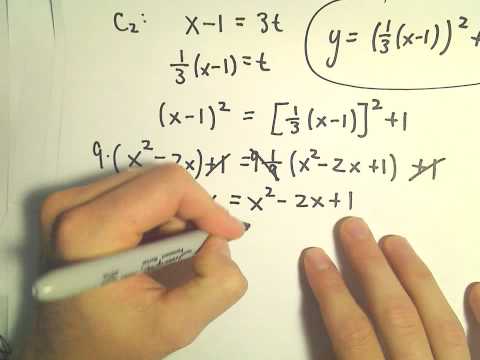 C₂: x-1 = 3t
y = (⅓(x-1))² +
⅓(x-1) = t
(x-1)² = [⅓(x-1)]² + 1
9·(x² - 2x) + 1 = 9 1/9 (x² - 2x + 1) + 1
x = x² - 2x + 1